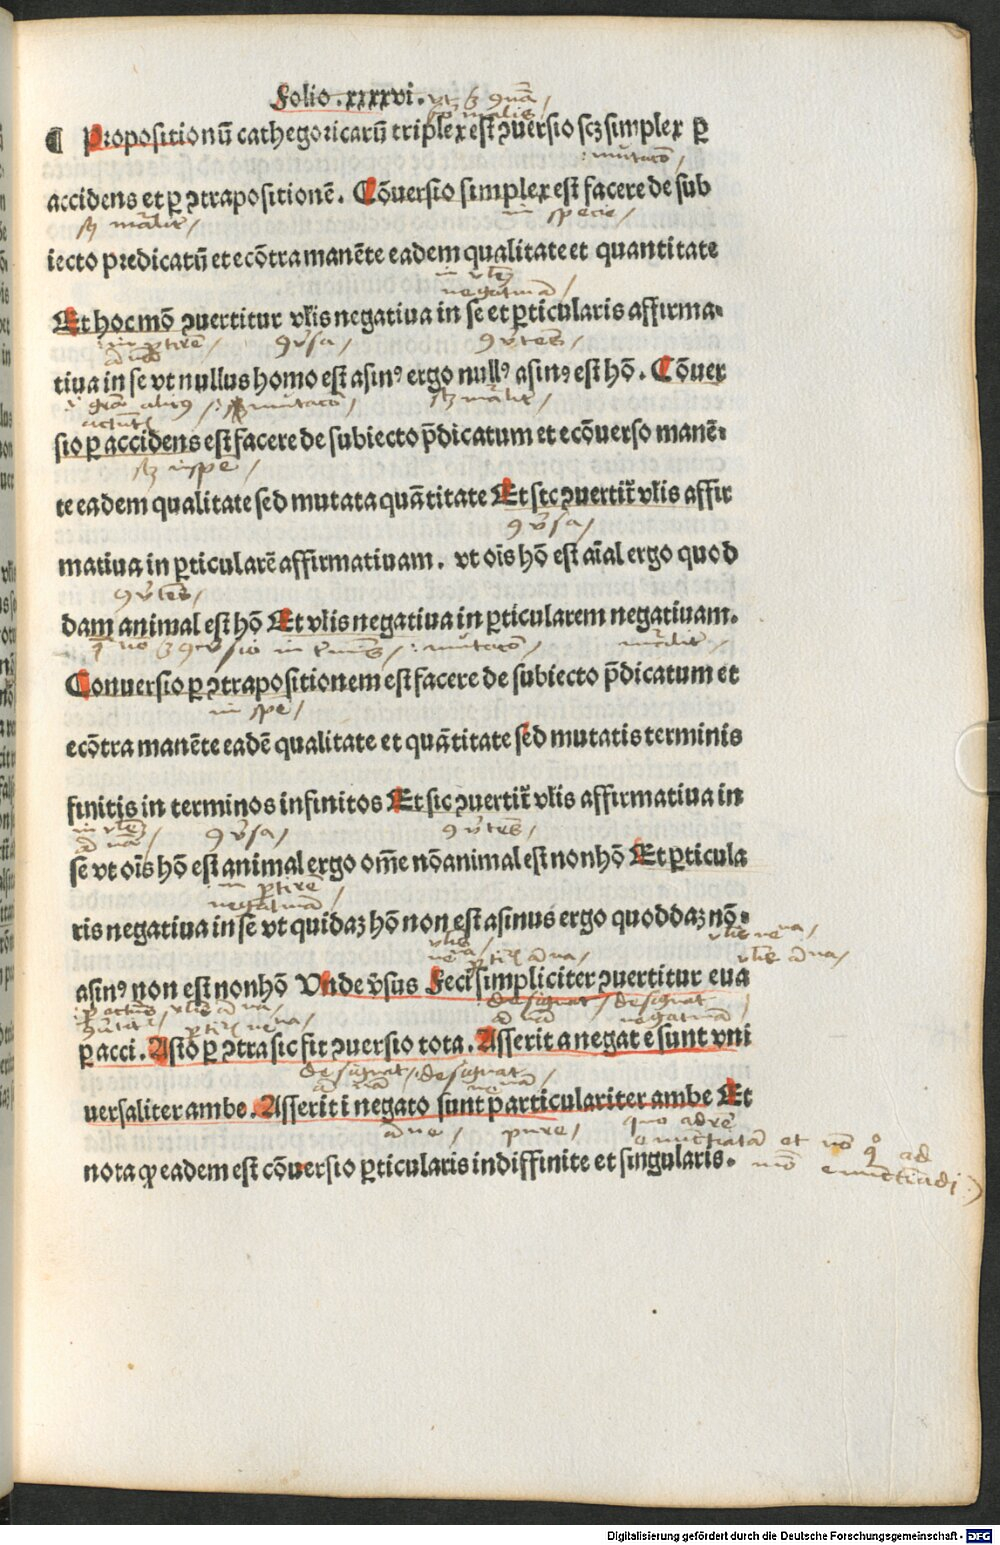 Folio.xxxxvi.
¶ Propositionū cathegoricarū triplex est ꝯuersio scꝫ simplex ꝑ
mutatō/
accidens et ꝑ ꝯtrapositionē. Cōuersio simplex est facere de sub
in specie/
iecto predicatū et ecōtra manēte eadem qualitate et quantitate
Et hoc mō ꝯuertitur vl̄is negatiua in se et ꝑticularis affirma-
tiua in se vt nullus homo est asinꝰ ergo nullꝰ asinꝰ est hō. Cōuer
sio ꝑ accidens est facere de subiecto p̄dicatum et ecōuerso manē-
te eadem qualitate sed mutata quātitate Et sic ꝯuertit̄ vl̄is affir
ꝯūsa/
matiua in ꝑticularē affirmatiuam. vt oīs hō est aīal ergo quod
ꝯūtēs/
dam animal est hō Et vl̄is negatiua in ꝑticularem negatiuam.
Conuersio ꝑ ꝯtrapositionem est facere de subiecto p̄dicatum et
in spe/
ecōtra manēte eadē qualitate et quātitate sed mutatis terminis
finitis in terminos infinitos Et sic ꝯuertit̄ vl̄is affirmatiua in
ꝯūsa/ ꝯūtēs/
se vt oīs hō est animal ergo om̄e nōanimal est nonhō Et ꝑticula
negatiuā/
ris negatiua in se vt quidaꝫ hō non est asinus ergo quoddaꝫ nō-
asinꝰ non est nonhō Unde v̄sus Feci simpliciter ꝯuertitur eua
designat/ designat
ꝑ acci. Asto ꝑ ꝯtra sic fit ꝯuersio tota. Asserit a negat e sunt vni
designat/ designat
uersaliter ambe. Asserit i negat o sunt particulariter ambe Et
nota ꝙ eadem est cōuersio ꝑticularis indiffinite et singularis.
Digitalisierung gefördert durch die Deutsche Forschungsgemeinschaft - DFG